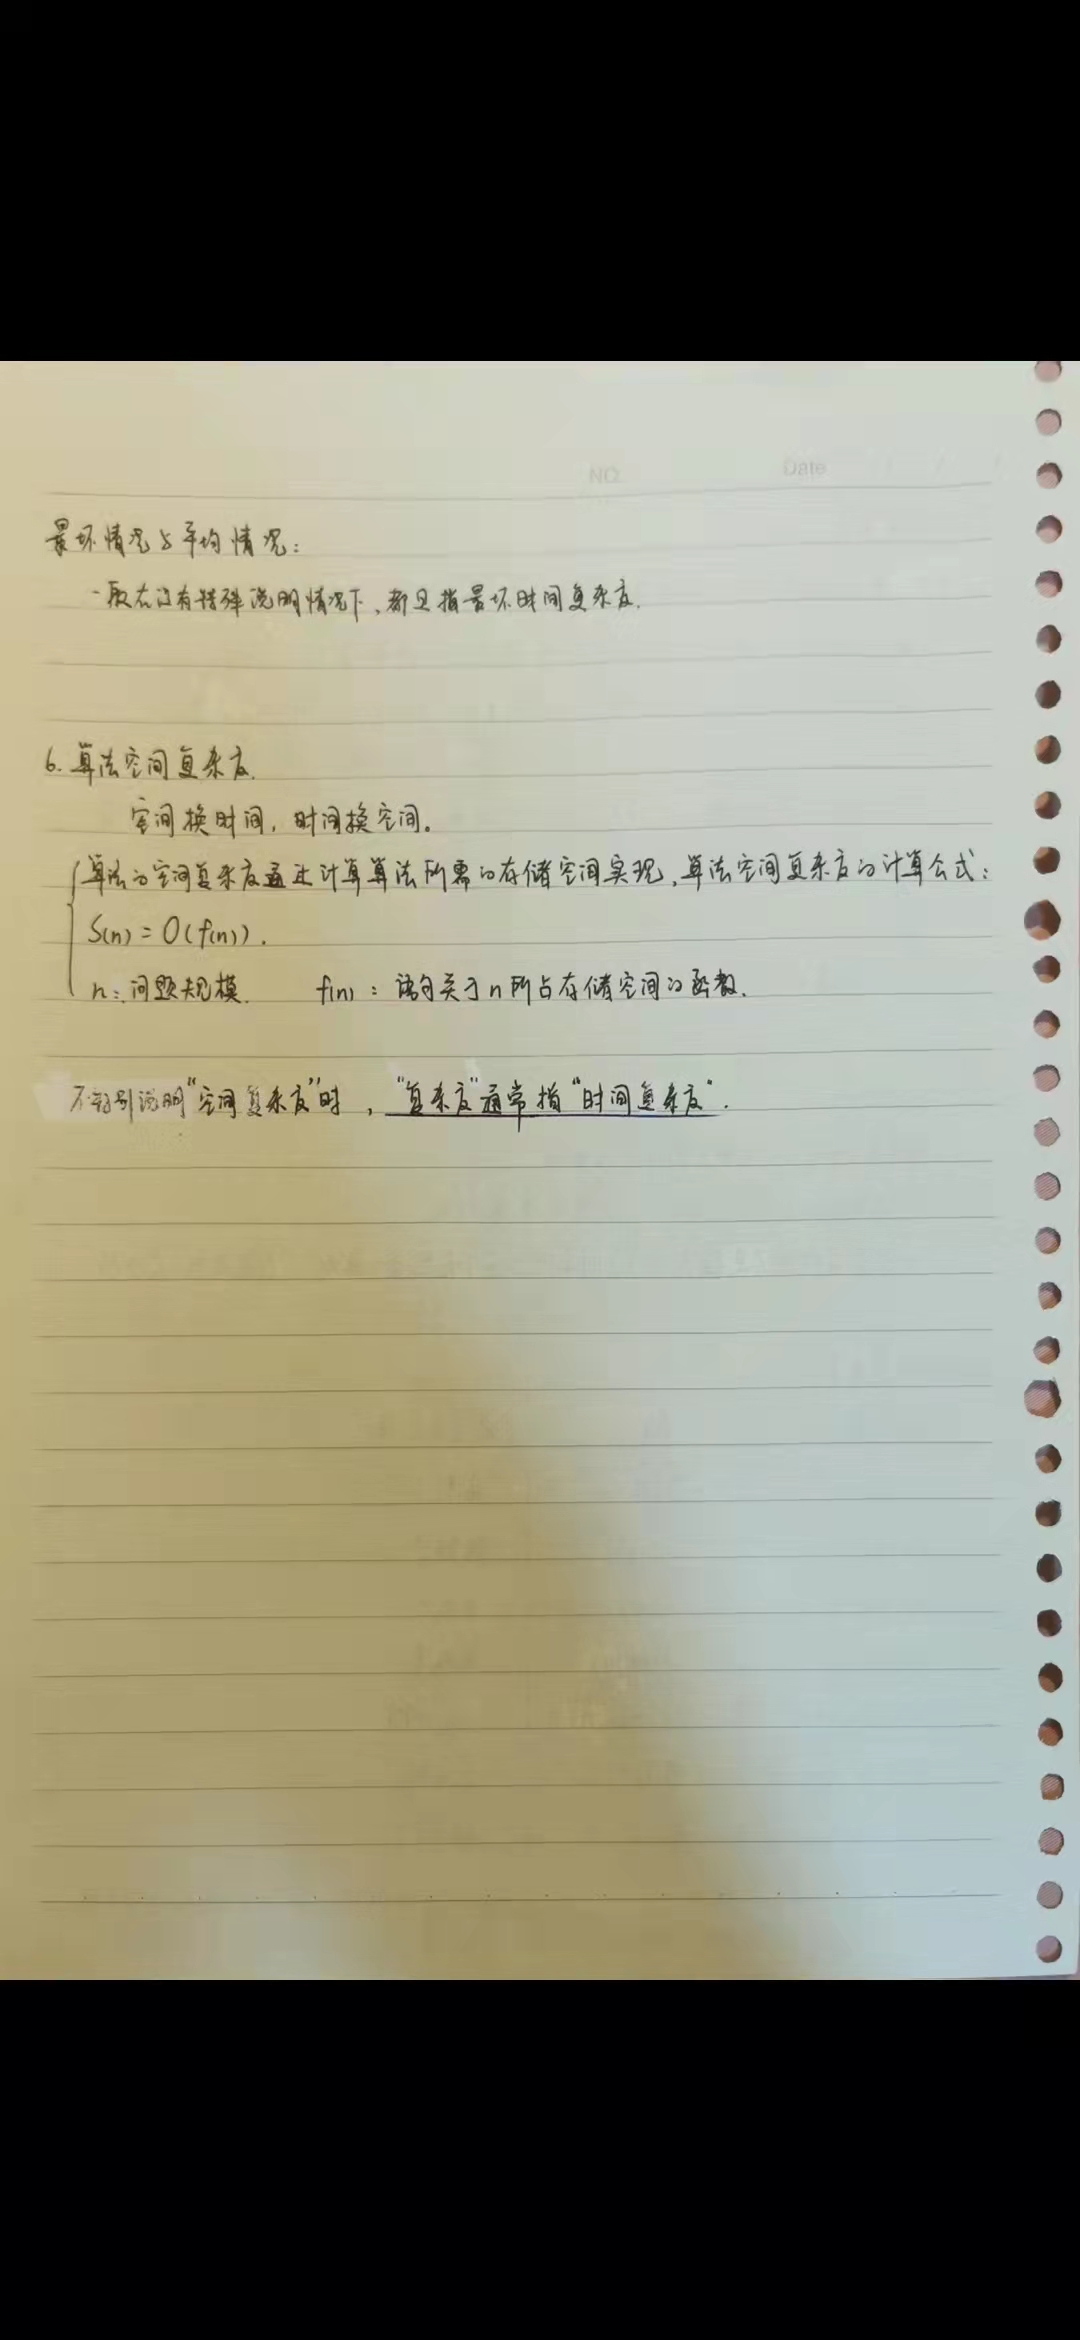 NO.
Date
最坏情况与平均情况：
一般在没有特殊说明情况下，都且指最坏时间复杂度.
6. 算法空间复杂度.
空间换时间，时间换空间。
算法的空间复杂度通过计算算法所需的存储空间实现，算法空间复杂度的计算公式：
S(n) = O(f(n)).
n：问题规模. f(n)：语句关于n所占存储空间的函数.
不特别说明"空间复杂度"时，"复杂度"通常指"时间复杂度".